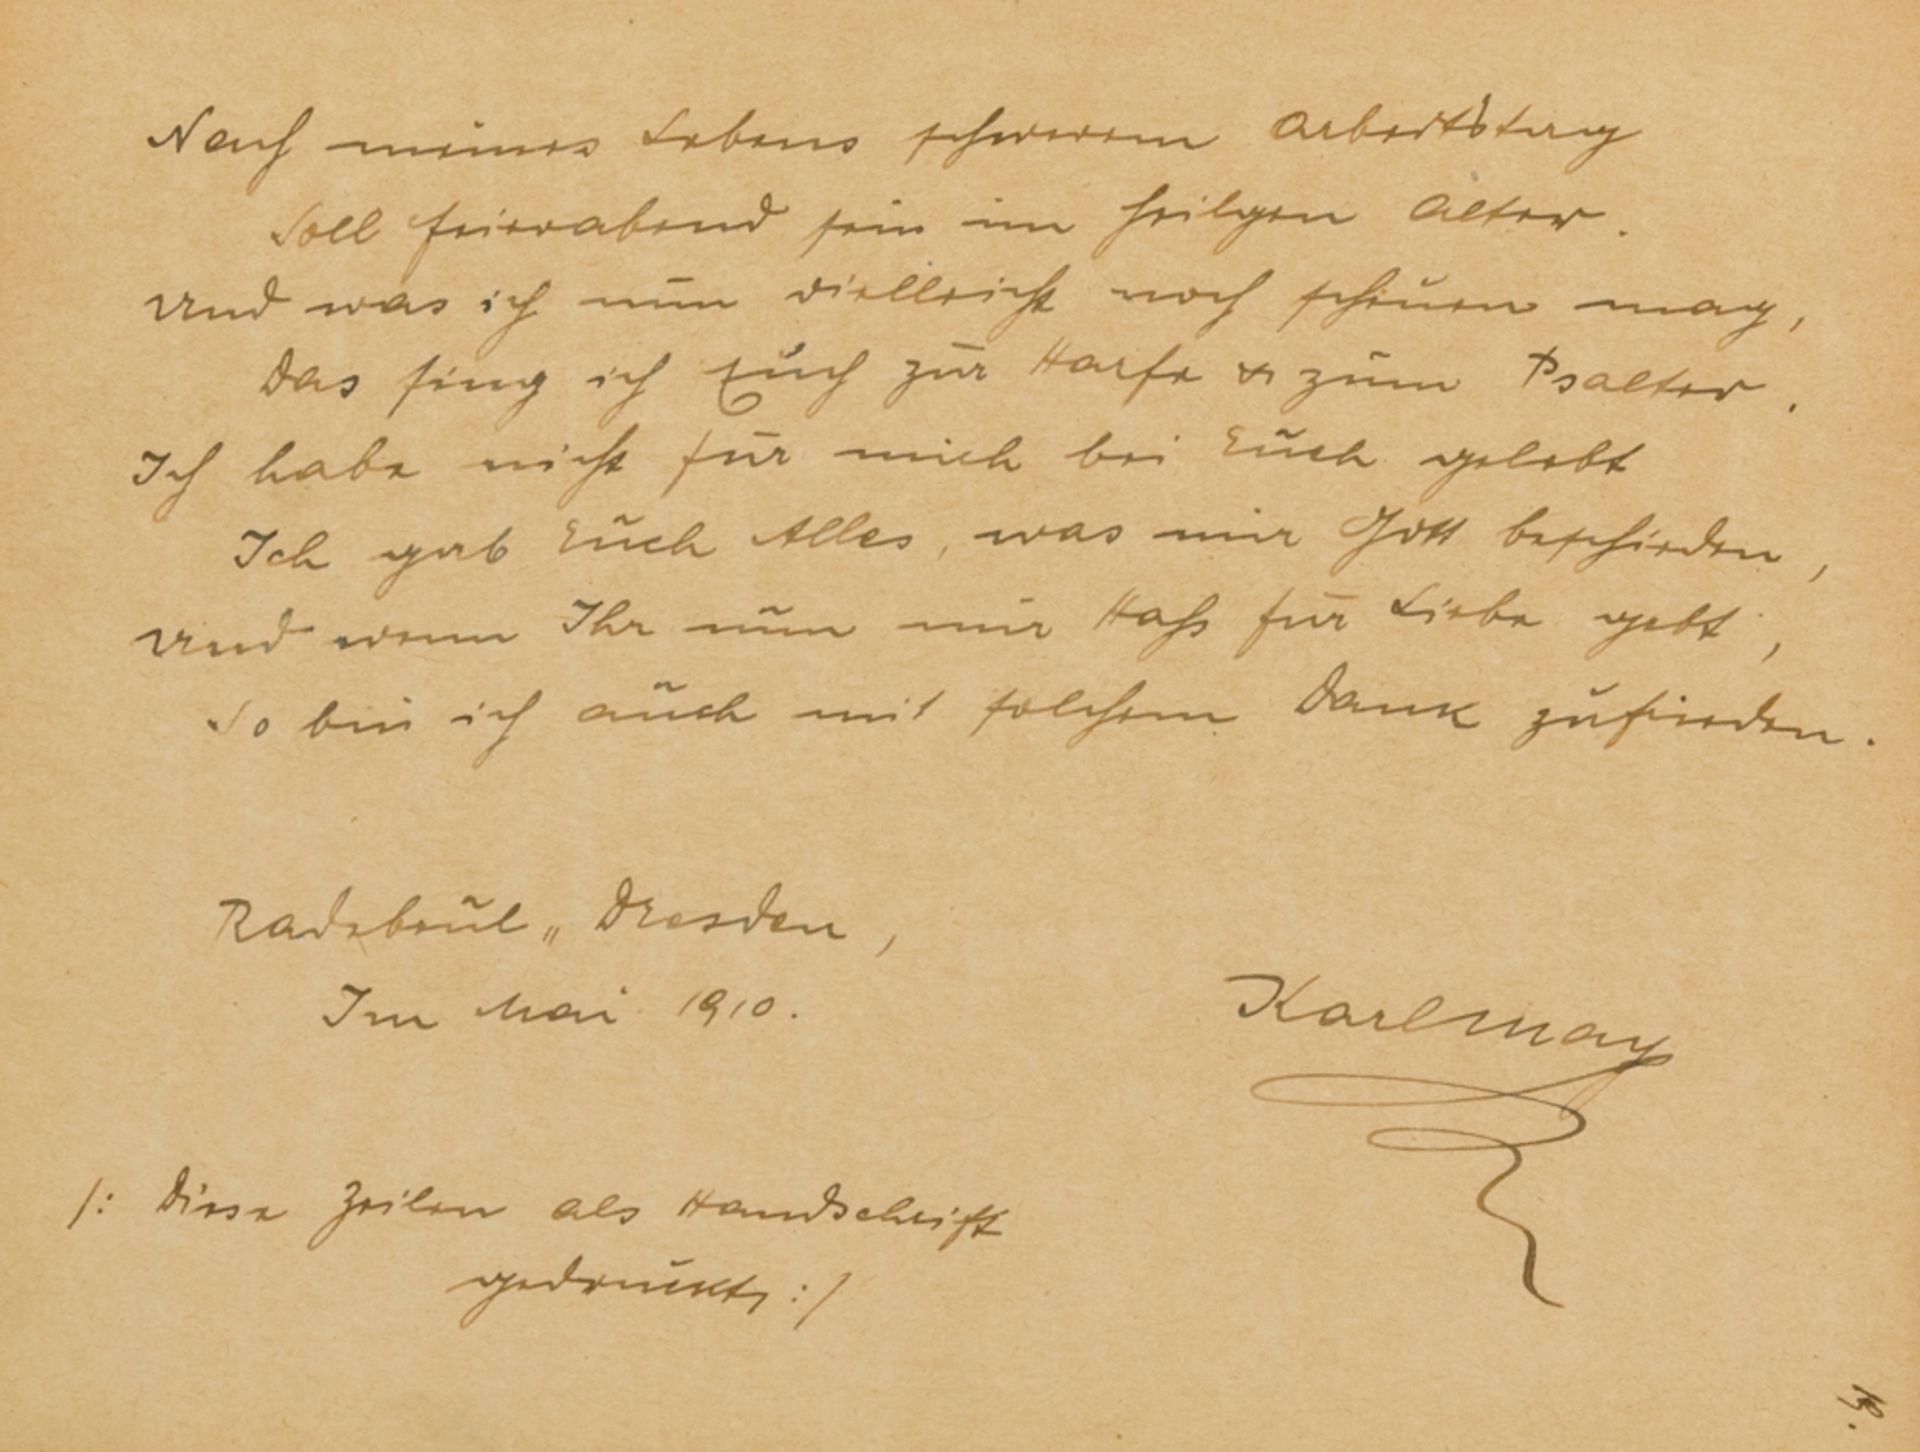 Nach meines Lebens schwerem Arbeitstag
Soll Feierabend sein im heilgen Alter.
Und was ich nun vielleicht noch schauen mag,
Das sing ich Euch zur Harfe & zum Psalter.
Ich habe nicht für mich bei Euch gelebt
Ich gab Euch Alles, was mir Gott beschieden,
Und wenn Ihr nun mir Haß für Liebe gebt,
So bin ich auch mit solchem Dank zufrieden.
Radebeul " Dresden,
Im Mai 1910.
Karl May
/: Diese Zeilen als Handschrift
gedruckt, :/